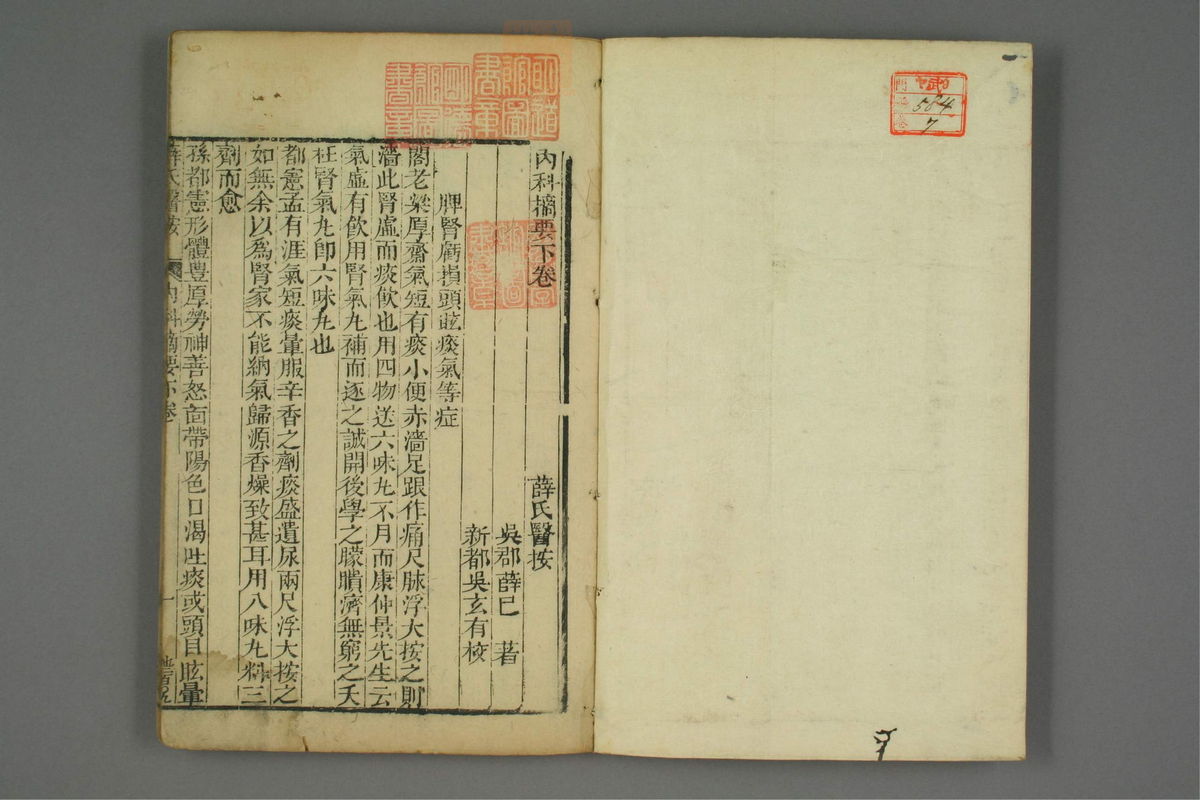 584
7
內科摘要下卷 薛氏醫按
吳郡薛已 著
新都吳玄有校
脾腎虧損頭眩痰氣等症
閣老梁厚齋氣短有痰小便赤濇足跟作痛尺脉浮大按之則
濇此腎虛而痰飲也用四物送六味丸不月而康仲景先生云
氣虛有飲用腎氣丸補而逐之誠開後學之朦瞶濟無窮之夭
枉腎氣丸即六味丸也
都憲孟有涯氣短痰暈服辛香之劑痰盛遺尿兩尺浮大按之
如無余以為腎家不能納氣歸源香燥致甚耳用八味丸料三
劑而愈
孫都憲形體豐厚勞神善怒面帶陽色口渴吐痰或頭目眩暈
薛氏醫按 內科摘要下卷 一